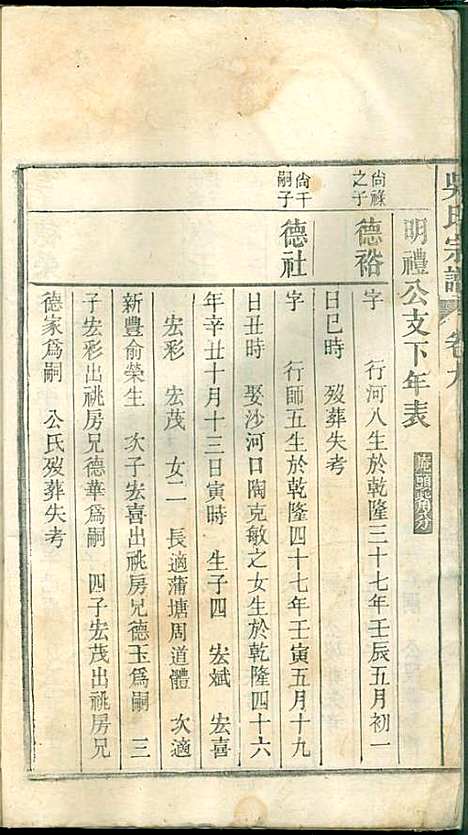 吳氏宗譜 卷九
明禮公支下年表
尙祿之子
德裕 字 行河八生於乾隆三十七年壬辰五月初一
日巳時 歿葬失考
尙千嗣子
德社 字 行師五生於乾隆四十七年壬寅五月十九
日丑時 娶沙河口陶克敏之女生於乾隆四十六
年辛丑十月十三日寅時 生子四 宏斌 宏喜
宏彩 宏茂 女二 長適蒲塘周道體 次適
新豐俞榮生 次子宏喜出祧房兄德玉爲嗣 三
子宏彩出祧房兄德華爲嗣 四子宏茂出祧房兄
德家爲嗣 公氏歿葬失考